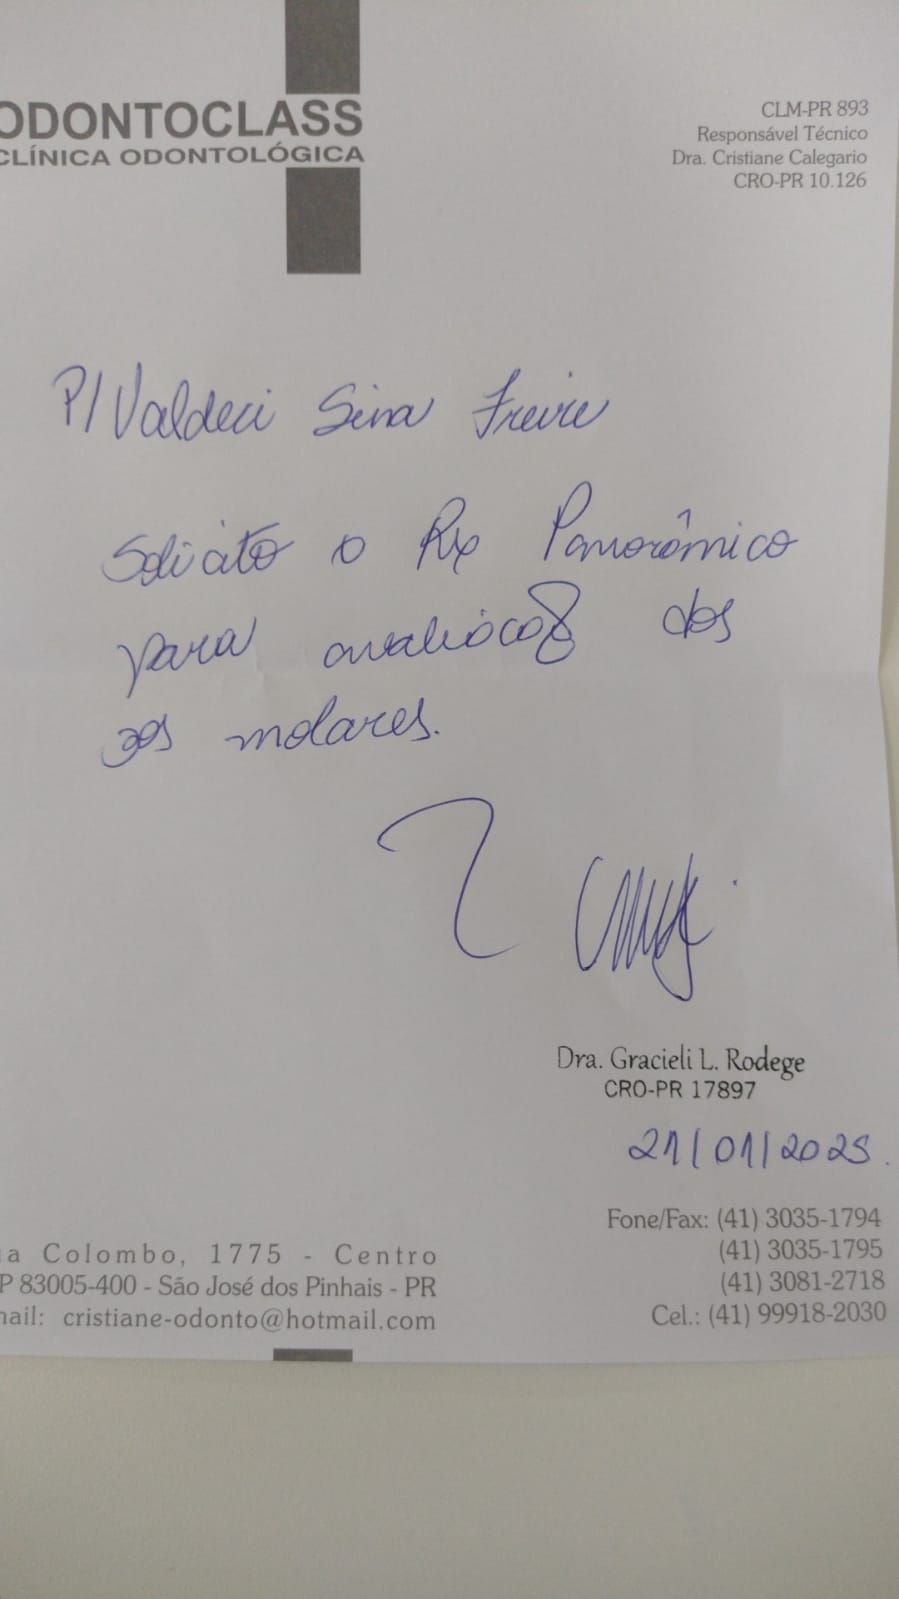 ODONTOCLASS
CLÍNICA ODONTOLÓGICA
CLM-PR 893
Responsável Técnico
Dra. Cristiane Calegario
CRO-PR 10.126
P/ Valdeci Sina Freire
Solicito o Rx Panorâmico
para avaliação dos
3os molares.
Dra. Gracieli L. Rodege
CRO-PR 17897
21/01/2025.
Fone/Fax: (41) 3035-1794
(41) 3035-1795
(41) 3081-2718
Cel.: (41) 99918-2030
ua Colombo, 1775 - Centro
P 83005-400 - São José dos Pinhais - PR
mail: cristiane-odonto@hotmail.com